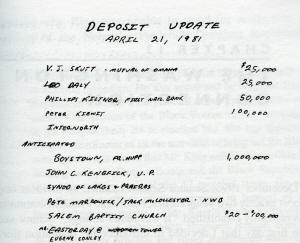 DEPOSIT UPDATE
APRIL 21, 1981
V.J. SKUTT - MUTUAL OF OMAHA $25,000
LEO DALY 25,000
PHILLIPS KILTNER FIRST NATL. BANK 50,000
PETER KIEWIT 100,000
INTERNORTH
ANTICIPATED
BOYSTOWN, FR. HUPP 1,000,000
JOHN C. KENEFICK, U.P.
SYNOD OF LAKES & PRAIRIES
PETE MARROWICK / JACK MCCLUSTER - NWB
SALEM BAPTIST CHURCH $20-$100,000
MR. EASTERDAY @ TOWER
EUGENE CONLEY